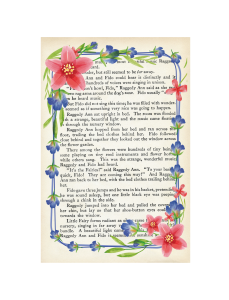 but still seemed to be far away.
Ann and Fido could hear it distinctly and it
hundreds of voices were singing in unison.
"You mustn't howl, Fido," Raggedy Ann said as she
arms around the dog's nose. Fido usually
to be heard music,
But Fido did not sing this time; he was filled with wonder
seemed as if something very nice was going to happen.
Raggedy Ann sat upright in bed. The room was flooded
a strange, beautiful light and the music came floating
through the nursery window.
Raggedy Ann hopped from her bed and ran across the
floor, trailing the bed clothes behind her. Fido followed
close behind and together they looked out the window across
the flower garden.
There among the flowers were hundreds of tiny beings,
some playing on tiny reed instruments and flower
while others sang. This was the strange, wonderful music
Raggedy and Fido had heard.
"It's the Fairies!" said Raggedy Ann. "To your
quick, Fido! They are coming this way!" And Raggedy
Ann ran back to her bed, with the bed clothes trailing behind
her.
Fido gave three jumps and he was in his basket, pretending
he was sound asleep, but one little black eye was peeping
through a chink in the side.
Raggedy jumped into her bed and pulled the covers
her chin, but lay so that her shoe-button eyes could
towards the window.
Little Fairy forms radiant as silver came
nursery, singing in far away
A beautiful light
Raggedy Ann and Fido